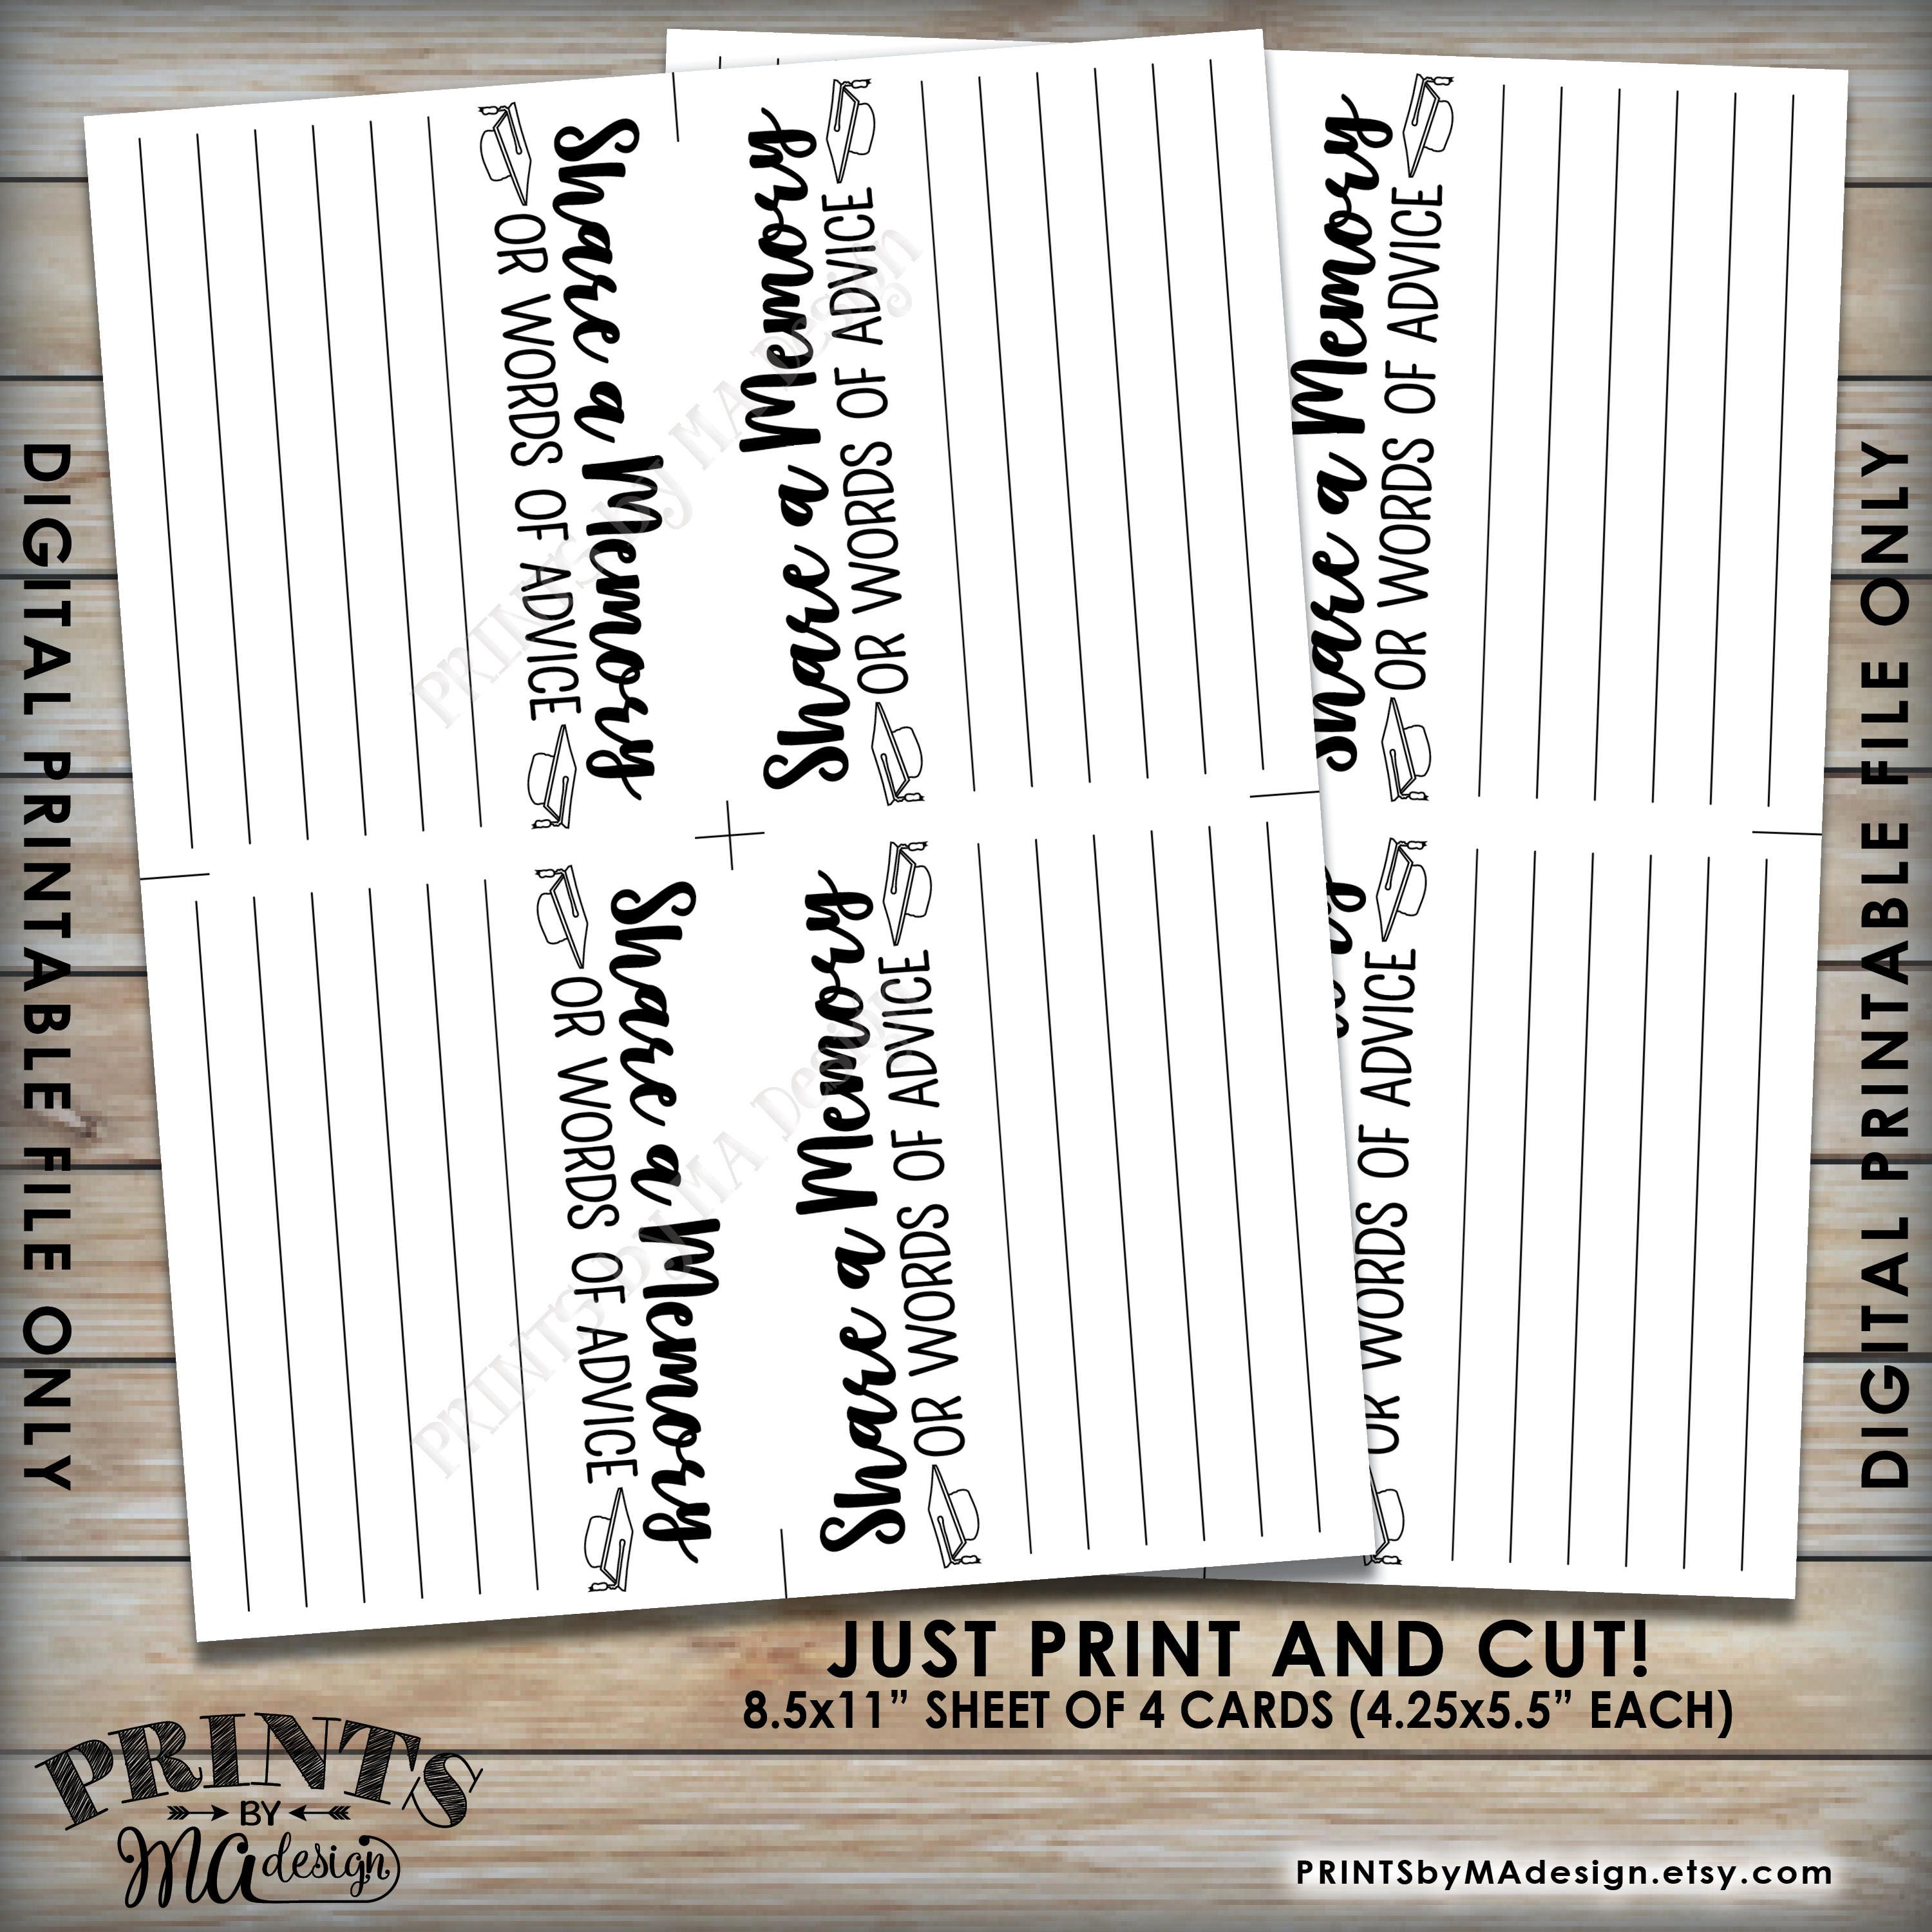 DIGITAL PRINTABLE FILE ONLY
Share a Memory
OR WORDS OF ADVICE
Share a Memory
OR WORDS OF ADVICE
Share a Memory
OR WORDS OF ADVICE
Share a Memory
OR WORDS OF ADVICE
Share a Memory
OR WORDS OF ADVICE
OR WORDS OF ADVICE
PRINTS by MA Design
PRINTS by MA Design
DIGITAL PRINTABLE FILE ONLY
JUST PRINT AND CUT!
8.5x11” SHEET OF 4 CARDS (4.25x5.5” EACH)
PRINTS
BY
MA design
PRINTSbyMAdesign.etsy.com